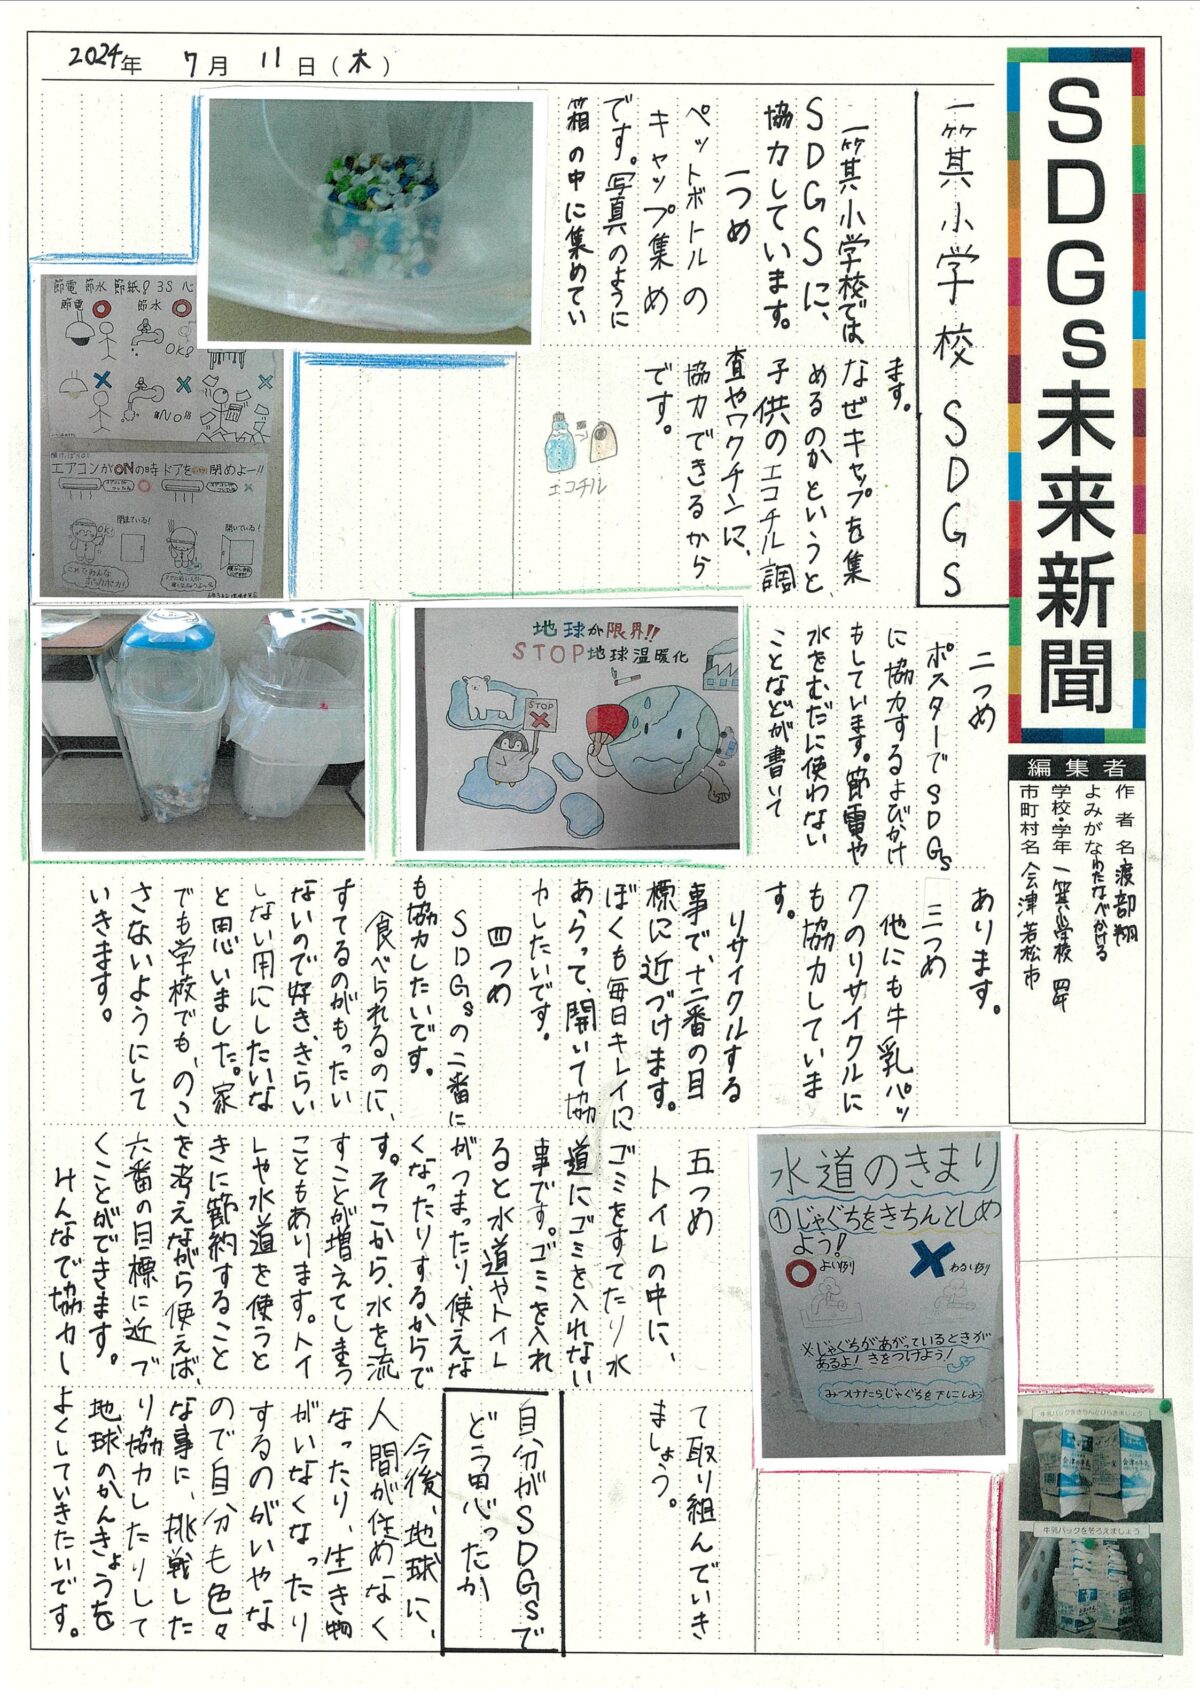 2024年 7月 11日(木)
SDGs未来新聞
編集者
作者名 渡部翔
よみがな わたなべかける
学校・学年 一箕小学校 四年
市町村名 会津若松市
一箕小学校SDGS
一箕小学校では
SDGSに、
協力しています。
一つめ
ペットボトルの
キャップ集め
です。写真のように
箱の中に集めてい
ます。
なぜキャップを集
めるのかというと、
子供のエコチル調
査やワクチンに、
協力できるから
です。
エコチル
二つめ
ポスターでSDGs
に協力するよびかけ
もしています。節電や
水をむだに使わない
ことなどが書いて
あります。
三つめ
他にも牛乳パッ
クのリサイクルに
も協力していま
す。
リサイクルする
事で、十二番の目
標に近づけます。
ぼくも毎日キレイに
あらって、開いて協
力したいです。
四つめ
SDGsの二番に
も協力したいです。
食べられるのに、
すてるのがもったい
ないので好き、きらい
しない用にしたいな
と思いました。家
でも学校でも、のこ
さないようにして
いきます。
五つめ
トイレの中に、
ゴミをすてたり水
道にゴミを入れない
事です。ゴミを入れ
ると水道やトイレ
がつまったり、使えな
くなったりするからで
す。そこから、水を流
すことが増えてしまう
こともあります。トイ
レや水道を使うと
きに節約すること
を考えながら使えば、
六番の目標に近づ
くことができます。
みんなで協力し
て取り組んでいき
ましょう。
自分がSDGsで
どう思ったか
今後、地球に、
人間が住めなく
なったり、生き物
がいなくなったり
するのがいやな
ので自分も色々
な事に、挑戦した
り協力したりして
地球のかんきょうを
よくしていきたいです。
節電 節水 節紙! 3S 心
節電 節水
OK!
NO!!
エアコンがONの時ドアを閉めよー!!
閉まっている!
開いている!
地球が限界!!
STOP地球温暖化
STOP
水道のきまり
①じゃぐちをきちんとしめ
よう!
よい例
わるい例
※じゃぐちがあがっているときが
あるよ!きをつけよう!
みつけたらじゃぐちを下にしよう
牛乳パックをきちんとひらきましょう
牛乳パックをそろえましょう